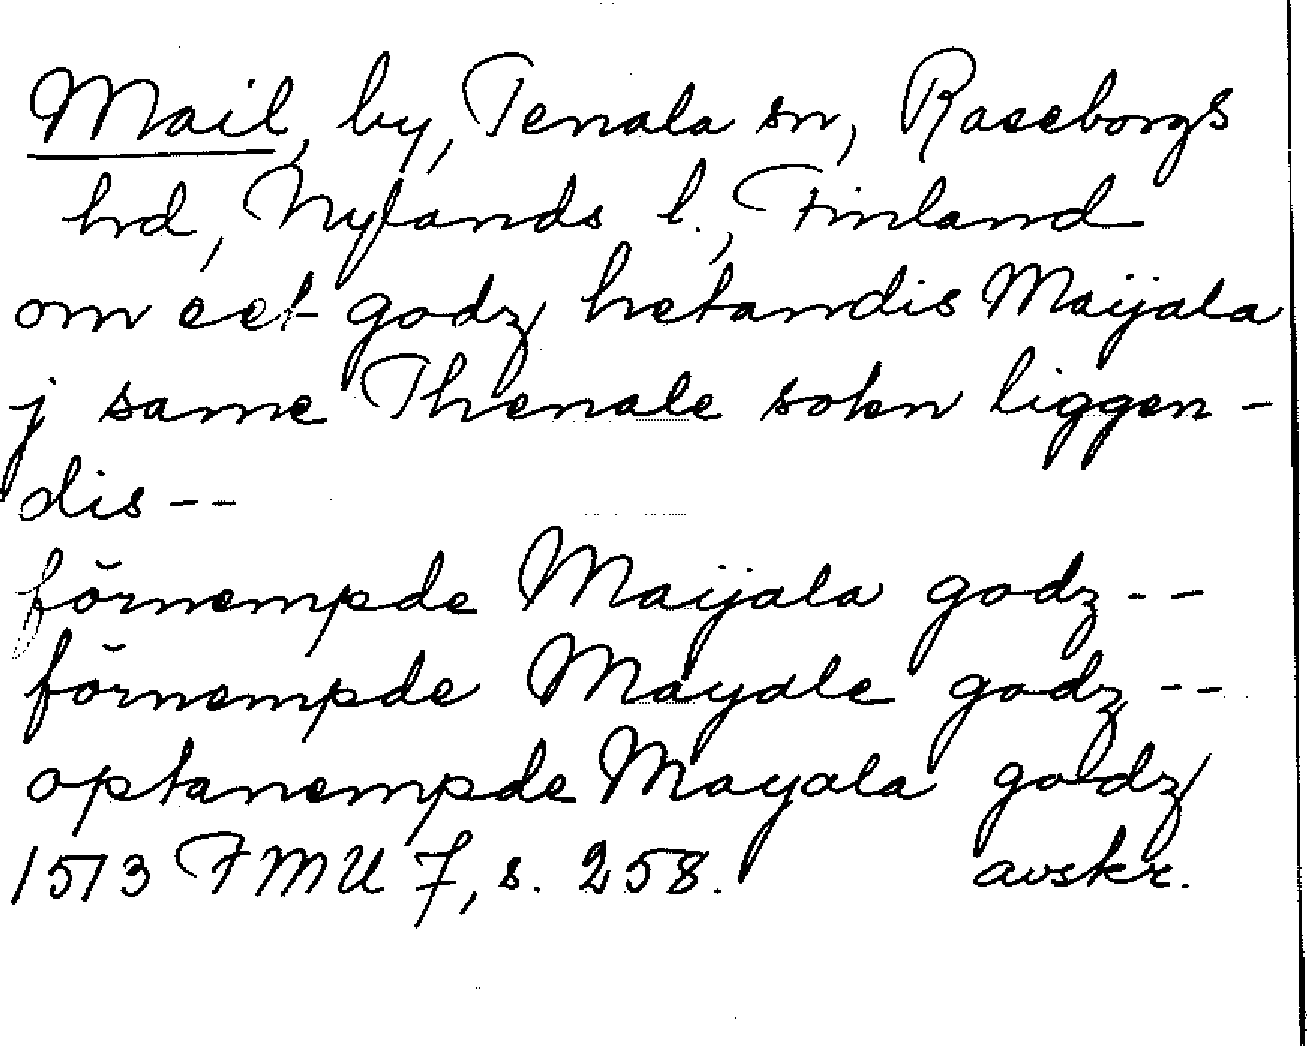 Mail, by, Tenala sn, Raseborgs
hrd, Nylands l., Finland
om eet godz hetandis Maijala
j same Thenale sokn liggen-
dis--
förnempde Maijala godz--
förnempde Mayale godz--
optanempde Mayala godz
1513 FMU 7, s. 258. avskr.